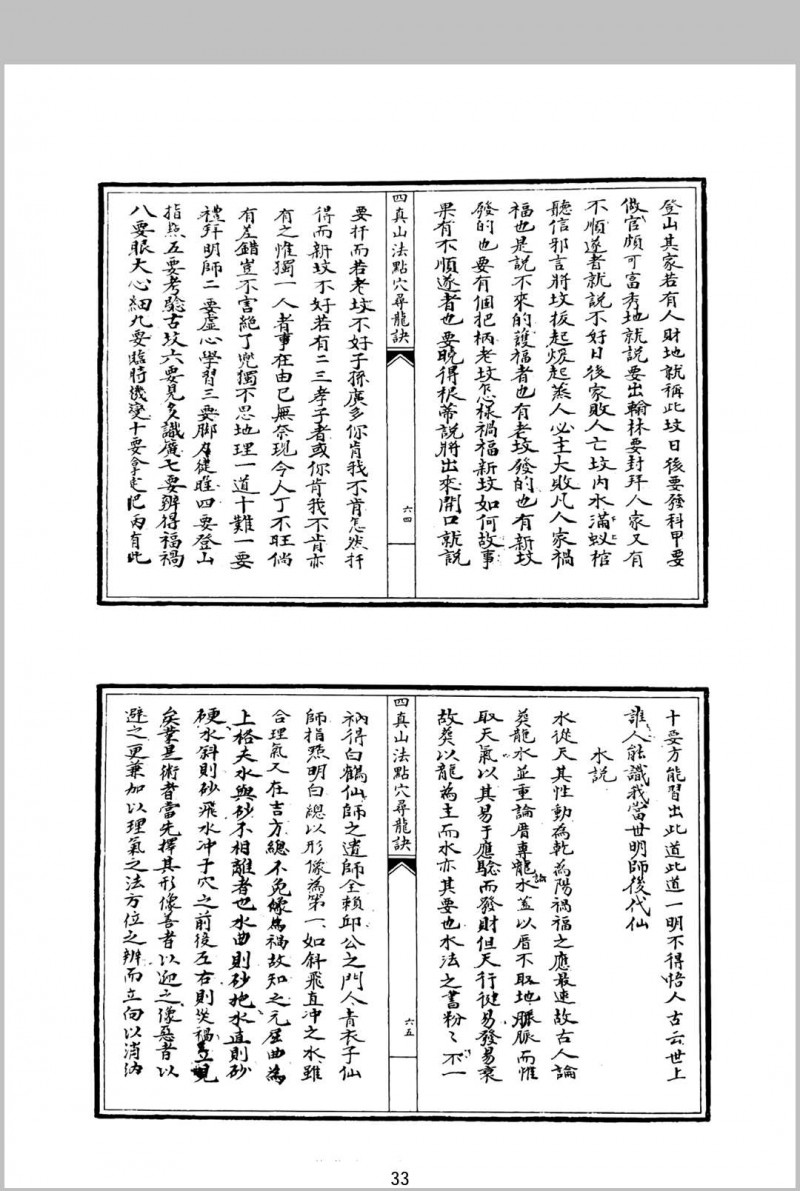 登山其家若有人財地就稱此坟日後要發科甲要
做官頗可富秀地就說要出翰林要封拜人家又有
不順遂者就說不好日後家敗人亡坟內水滿蚁棺
聽信邪言將坟扳起煅起蒸人必主大敗凡人家禍
福也是說不來的護福者也有老坟發的也有新坟
發的也要有個把柄老坟怎樣禍福新坟如何故事
果有不順遂者也要曉得根蒂說將出來開口就說
四真山法點穴尋龍訣
六四
要扦而若老坟不好子孫廣多你肯我不肯怎然扦
得而新坟不好若有二三孝子者或你肯我不肯亦
有之惟獨一人者事在由已無奈現今人丁不旺倘
有差錯豈不害絕了兜獨不思地理一道十難一要
禮拜明師二要虛心學習三要脚力健旺四要登山
指點五要考騐古坟六要見多識廣七要辨得福禍
八要眼大心細九要臨時機変十要拿定把丙有此
十要方能習出此道此道一明不得悟人古云世上
誰人能識我當世明師後代仙
水說
水從天其性動為乾為陽禍福之應最速故古人論
葬龍水並重論厝專論水盖以厝不取地脈而惟
取天氣以其易于應騐而發財但天行健易發易衰
故葬以龍為主而水亦其要也水法之書粉〻不一
四真山法點穴尋龍訣
六五
衲得白鶴仙師之遺師全賴邱公之門人青衣子仙
師指點明白總以形像為第一如斜飛直冲之水雖
合理氣又在吉方總不免緣為禍故知之元屈曲為
上格夫水與砂不相離者也水曲則砂抱水直則砂
硬水斜則砂飛水冲子穴之前後左右則災禍立見
矣業是術者當先擇其形像善者以迎之像惡者以
避之更兼加以理氣之法方位之辨而立向以消納
33